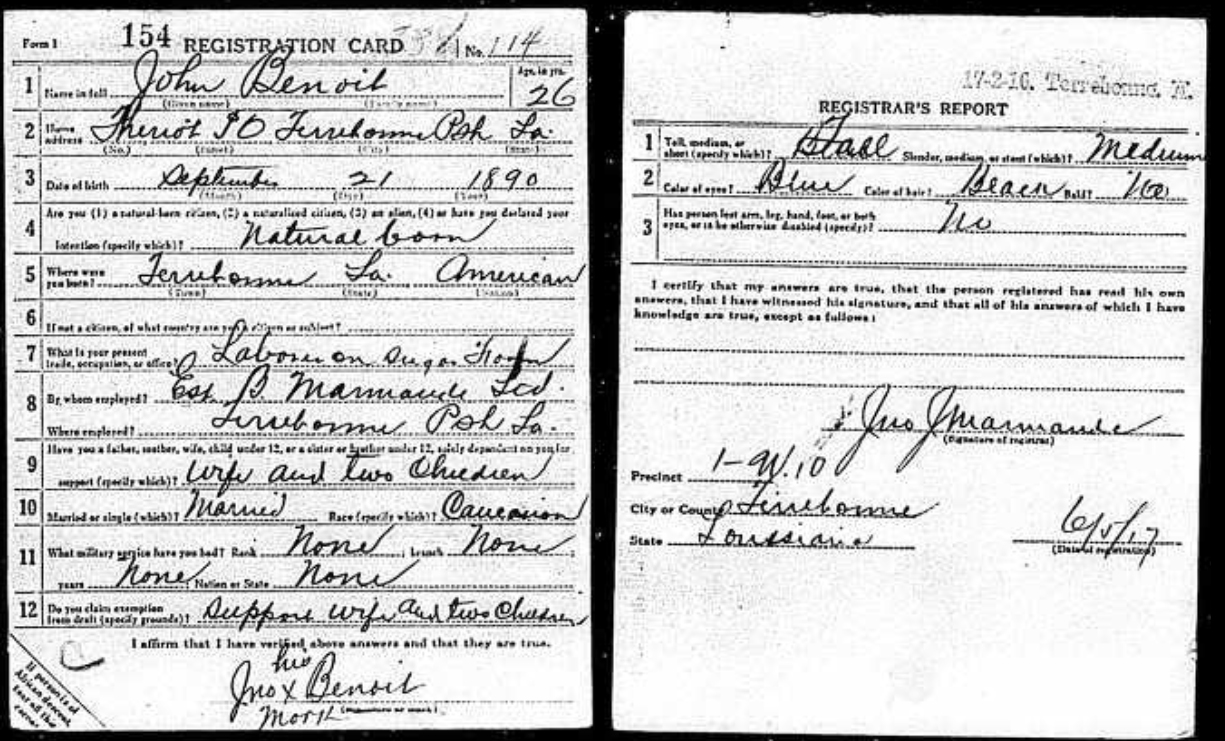 Form 1 154 REGISTRATION CARD No. 114
1 Name in full John Benoit Age, in yrs. 26
(Given name) (Family name)
2 Home address Theriot P O Terrebonne Psh La.
(No.) (Street) (City) (State)
3 Date of birth September 21 1890
(Month) (Day) (Year)
4 Are you (1) a natural-born citizen, (2) a naturalized citizen, (3) an alien, (4) or have you declared your
intention (specify which)? Natural born
5 Where were you born? Terrebonne La. American
(Town) (State) (Nation)
6 If not a citizen, of what country are you a citizen or subject?
7 What is your present trade, occupation, or office? Laborer on Sugar Farm
8 By whom employed? Est B. Marmande Ltd.
Where employed? Terrebonne Psh La.
9 Have you a father, mother, wife, child under 12, or a sister or brother under 12, solely dependent on you for
support (specify which)? Wife and two Children
10 Married or single (which)? Married Race (specify which)? Caucasian
11 What military service have you had? Rank None ; branch None ;
years None ; Nation or State None
12 Do you claim exemption from draft (specify grounds)? Support wife and two Children
I affirm that I have verified above answers and that they are true.
his
Jno x Benoit
Mark
(Signature or mark)
If person is of
African descent,
tear off this
corner
17-2-16. Terrebonne,
REGISTRAR'S REPORT
1 Tall, medium, or short (specify which)? Tall Slender, medium, or stout (which)? Medium
2 Color of eyes? Blue Color of hair? Black Bald? No
3 Has person lost arm, leg, hand, foot, or both eyes, or is he otherwise disabled (specify)? No
I certify that my answers are true, that the person registered has read his own
answers, that I have witnessed his signature, and that all of his answers of which I have
knowledge are true, except as follows:
Jno J Marmande
(Signature of registrar)
Precinct 1-W.10
City or County Terrebonne
State Louisiana 6/5/17
(Date of registration)